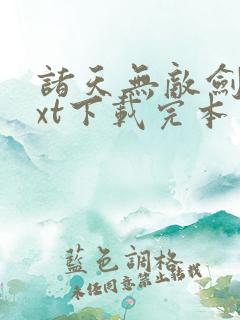 諸天無敵劍
xt下載完本
藍色調格
未任同意禁止轉載